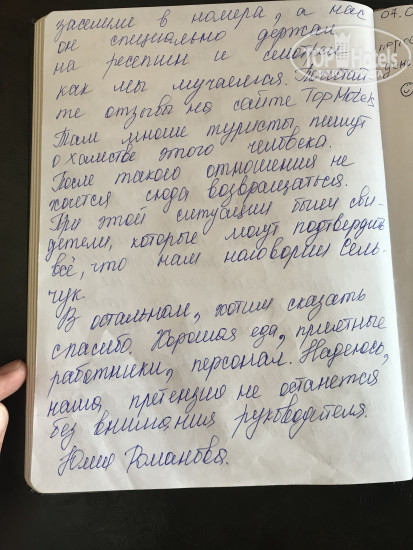 заселили в номера, а нас
он специально держал
на ресепшн и смотрел
как мы мучаемся. Почитай
те отзывы на сайте TopHotels
Там многие туристы пишут
о хамстве этого человека.
После такого отношения не
хочется сюда возвращаться.
При этой ситуации были сви-
детели, которые могут подтвердить
всё, что нам наговорил Сель-
чук.
В остальном, хотим сказать
спасибо. Хорошая еда, приятные
работники, персонал. Надеюсь,
наша претензия не останется
без внимания руководителя.
Юлия Романова.
07.0
TopHotels